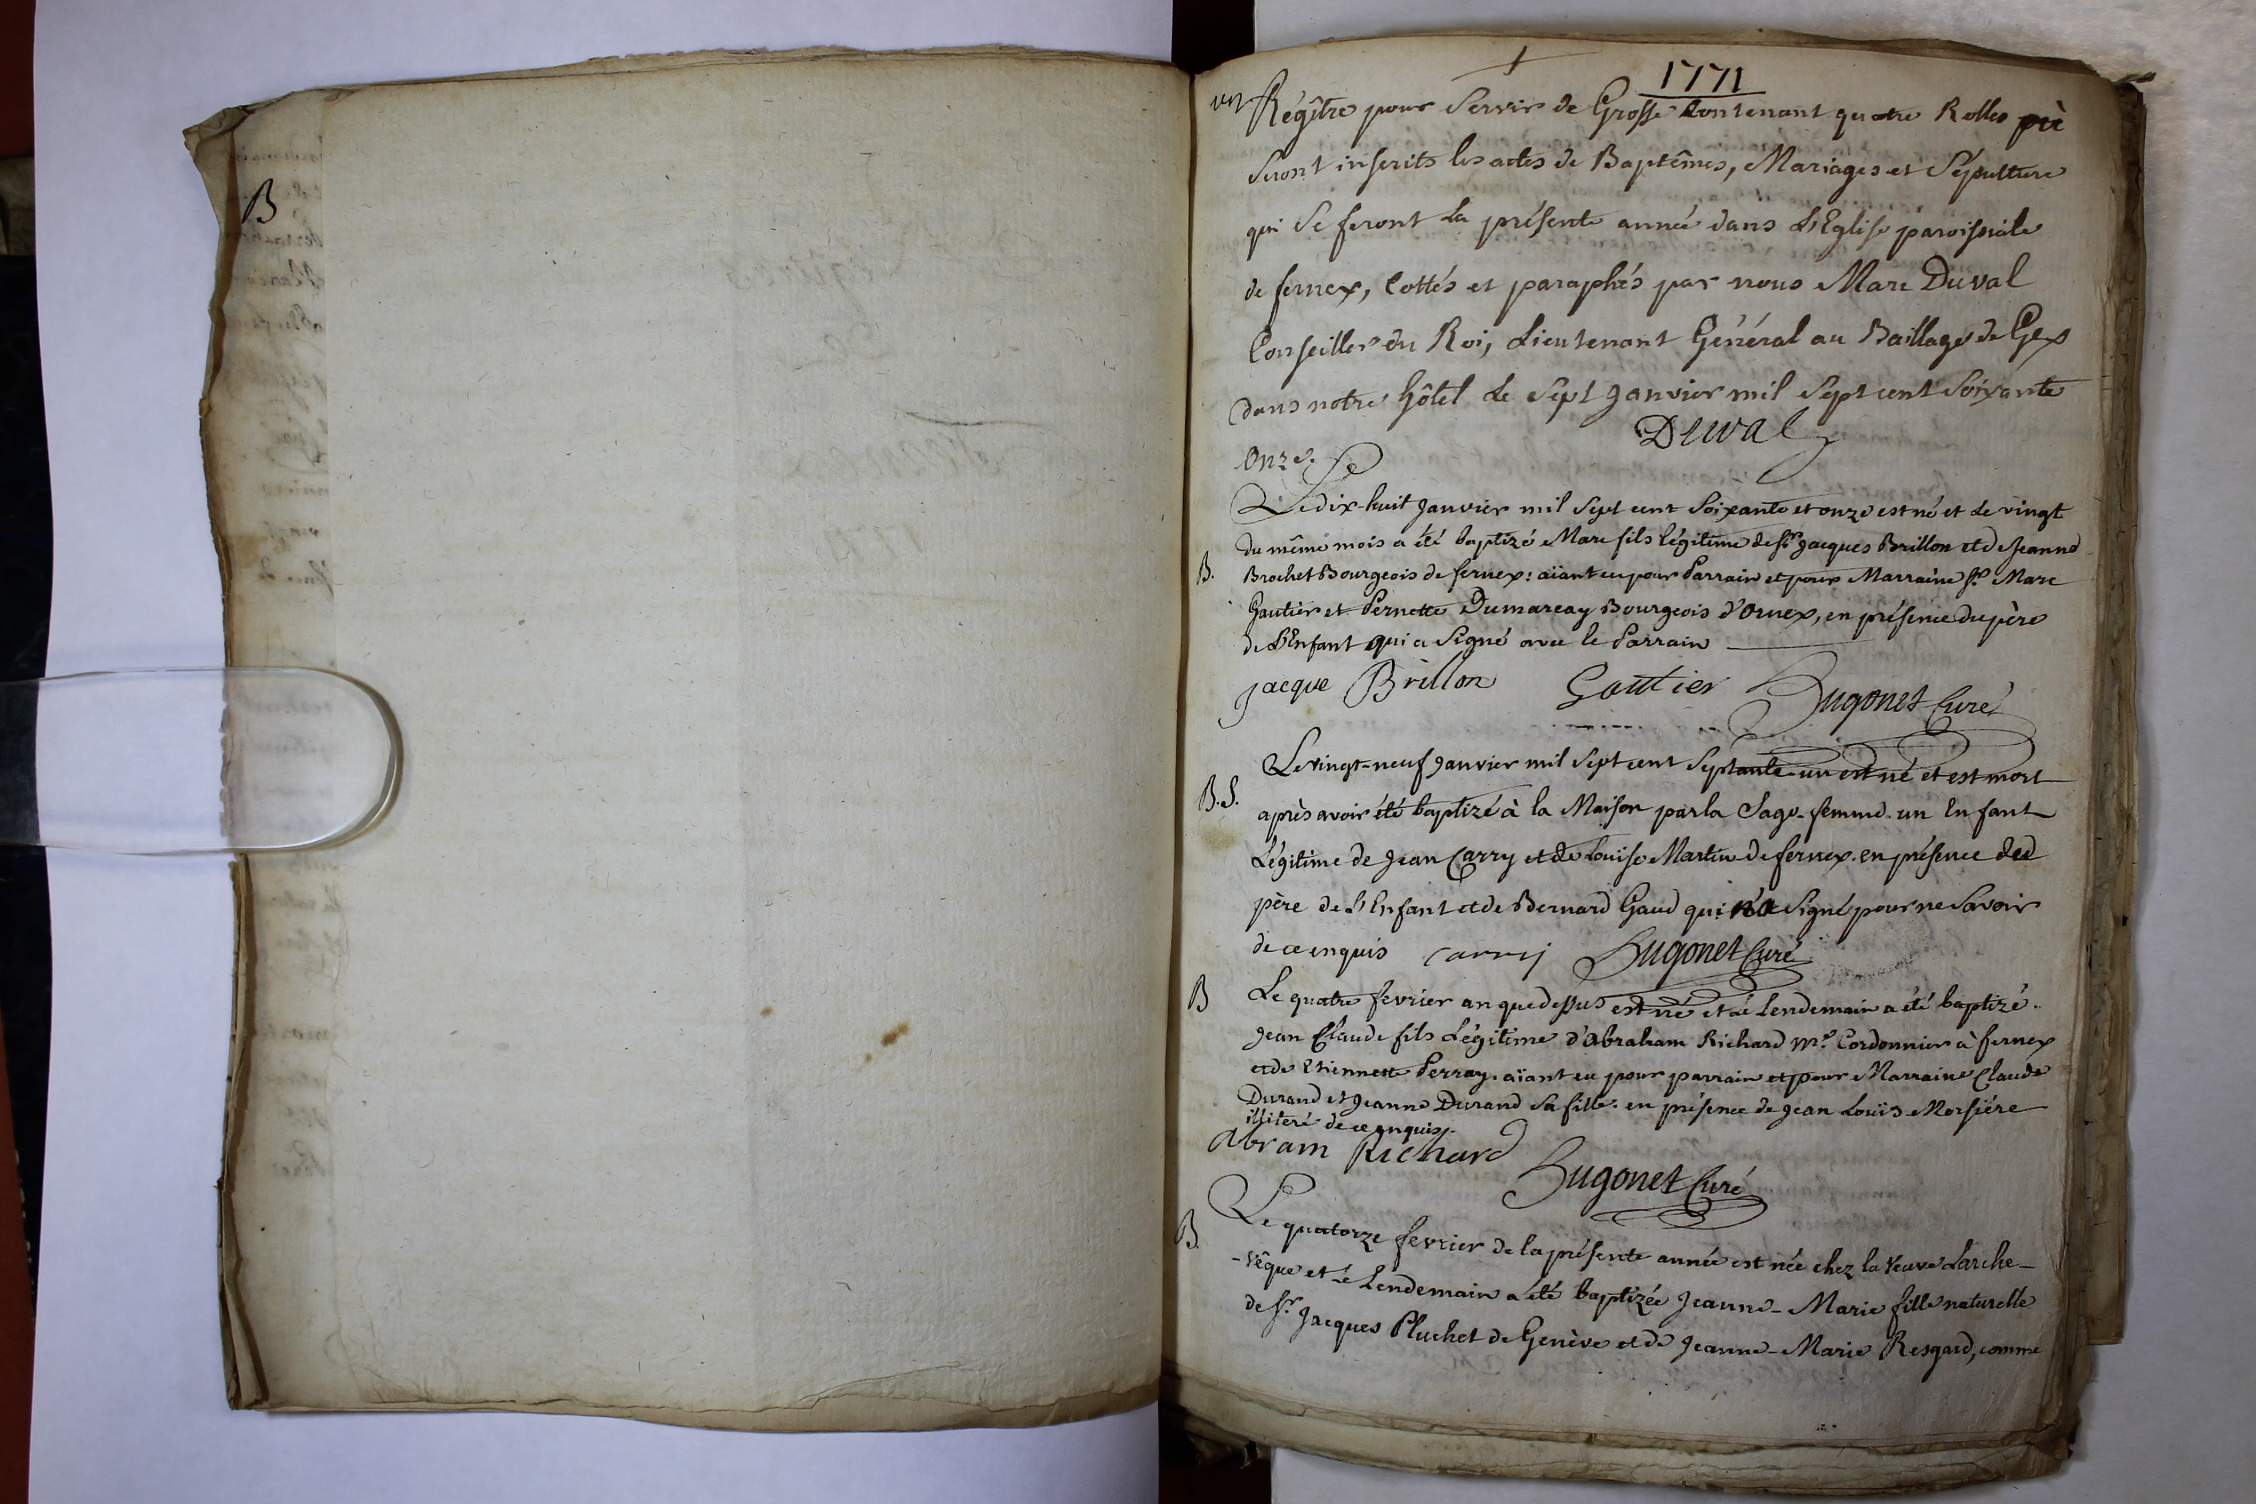 B
1771
Régître pour Servir de Grosse Contenant quatre Rolles où
Seront inserits les actes de Baptêmes, Mariages et Sépulture
qui Se feront La présente année dans L'Eglise paroissiale
de fernex, Cottés et paraphés par nous Marc Duval
Conseiller du Roi, Lieutenant Général au Baillage de Gex
dans notre hôtel Le Sept Janvier mil Sept cent Soixante
Duval
Onze.
Le dix-huit Janvier mil Sept cent Soixante et onze est né et Le vingt
du même mois a été baptizé Marc fils légitime de Sr. Jacques Brillon et de Jeanne
B.
Brochet Bourgeois de fernex: aïant eu pour Parrain et pour Marraine Sr. Marc
Gautier et Pernette Dumarcay Bourgeois d'Ornex, en présence du père
de L'Enfant qui a Signé avec le Parrain
Jacque Brillon Gautier Hugonet Curé
Le vingt-neuf Janvier mil Sept cent Septante-un est né et est mort
B.S.
après avoir été baptizé à la Maison par la Sage-femme un Enfant
Légitime de Jean Carry et de Louise Martin de fernex. en présence du
père de L'Enfant et de Bernard Gaud qui n'a Signé pour ne Savoir
de ce enquis carry Hugonet Curé
B
Le quatre fevrier an que dessus est né et Le Lendemain a été baptizé
Jean Claude fils Légitime d'Abraham Richard Me. Cordonnier à fernex
et de Etiennette Perray. aïant eu pour parrain et pour Marraine Claude
Durand et Jeanne Durand Sa fille. en présence de Jean Louïs Morsiére
illiteré de ce enquis.
Abram Richard
Hugonet Curé
B.
Le quatorze fevrier de la présente année est née chez la Veuve Larche-
-vêque et Le Lendemain a été baptizée Jeanne-Marie fille naturelle
de Sr. Jacques Pluchet de Genève et de Jeanne-Marie Resgard, comme